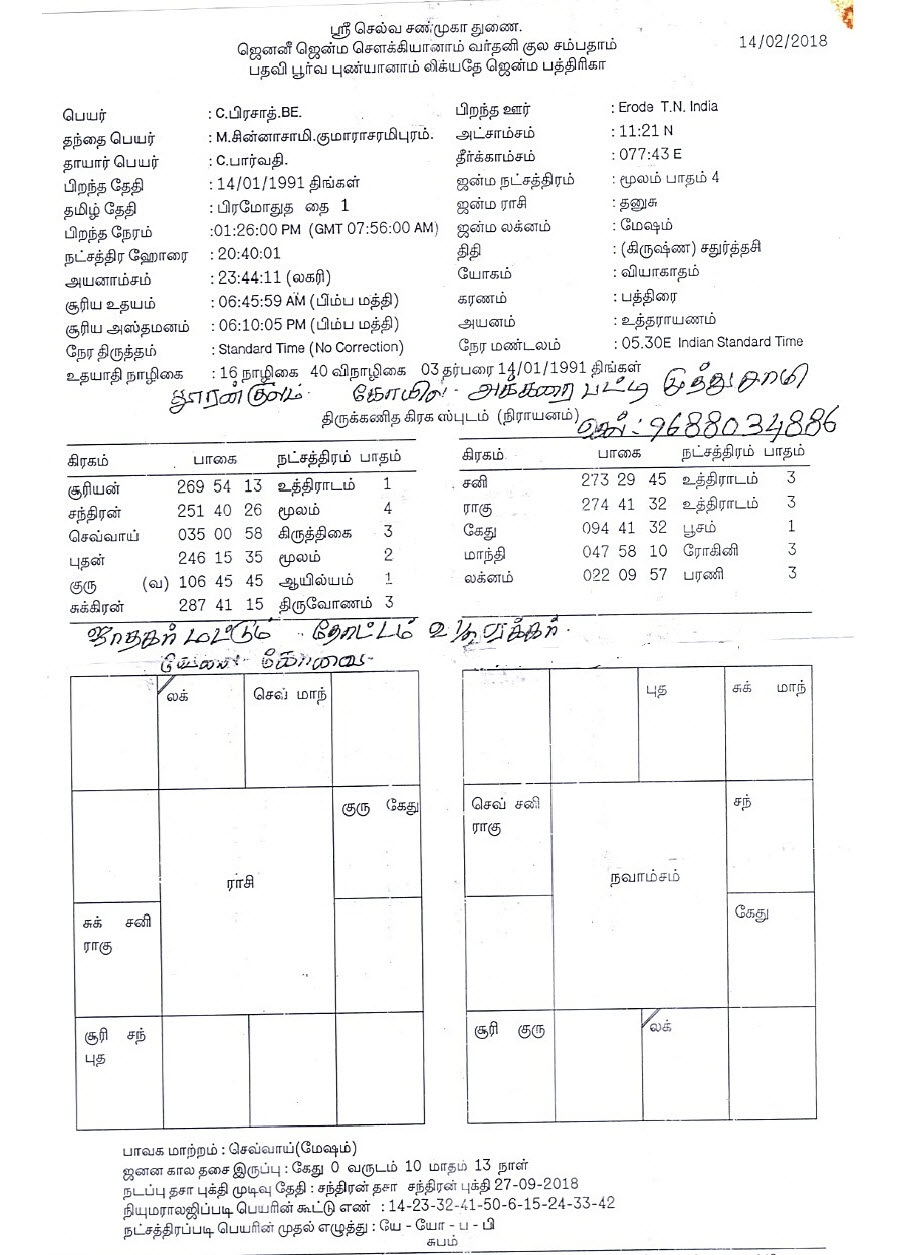 ஸ்ரீ செல்வ சண்முகா துணை.
ஜெனனீ ஜென்ம சௌக்கியானாம் வர்தனி குல சம்பதாம்
14/02/2018
பதவி பூர்வ புண்யானாம் லிக்யதே ஜென்ம பத்திரிகா
பெயர் : C.பிரசாத்.BE. பிறந்த ஊர் : Erode T.N. India
தந்தை பெயர் : M.சின்னாசாமி.குமாராசரமிபுரம். அட்சாம்சம் : 11:21 N
தாயார் பெயர் : C.பார்வதி. தீர்க்காம்சம் : 077:43 E
பிறந்த தேதி : 14/01/1991 திங்கள் ஜன்ம நட்சத்திரம் : மூலம் பாதம் 4
தமிழ் தேதி : பிரமோதுத தை 1 ஜன்ம ராசி : தனுசு
பிறந்த நேரம் :01:26:00 PM (GMT 07:56:00 AM) ஜன்ம லக்னம் : மேஷம்
நட்சத்திர ஹோரை : 20:40:01 திதி : (கிருஷ்ண) சதுர்த்தசி
அயனாம்சம் : 23:44:11 (லகரி) யோகம் : வியாகாதம்
சூரிய உதயம் : 06:45:59 AM (பிம்ப மத்தி) கரணம் : பத்திரை
சூரிய அஸ்தமனம் : 06:10:05 PM (பிம்ப மத்தி) அயனம் : உத்தராயணம்
நேர திருத்தம் : Standard Time (No Correction) நேர மண்டலம் : 05.30E Indian Standard Time
உதயாதி நாழிகை : 16 நாழிகை 40 விநாழிகை 03 தர்பரை 14/01/1991 திங்கள்
கோயில். அக்கரை பட்டி முத்துசாமி
திருக்கணித கிரக ஸ்புடம் (நிராயனம்)
செல் : 9688034886
கிரகம் பாகை நட்சத்திரம் பாதம் கிரகம் பாகை நட்சத்திரம் பாதம்
சூரியன் 269 54 13 உத்திராடம் 1 சனி 273 29 45 உத்திராடம் 3
சந்திரன் 251 40 26 மூலம் 4 ராகு 274 41 32 உத்திராடம் 3
செவ்வாய் 035 00 58 கிருத்திகை 3 கேது 094 41 32 பூசம் 1
புதன் 246 15 35 மூலம் 2 மாந்தி 047 58 10 ரோகினி 3
குரு (வ) 106 45 45 ஆயில்யம் 1 லக்னம் 022 09 57 பரணி 3
சுக்கிரன் 287 41 15 திருவோணம் 3
ஜாதகர் மட்டும் . தோட்டம் உள்ளது
வேலை கோவை
லக் செவ் மாந்
குரு கேது
ராசி
சுக் சனி
ராகு
சூரி சந்
புத
புத சுக் மாந்
செவ் சனி
ராகு
சந்
நவாம்சம்
கேது
சூரி குரு லக்
பாவக மாற்றம் : செவ்வாய்(மேஷம்)
ஜனன கால தசை இருப்பு : கேது 0 வருடம் 10 மாதம் 13 நாள்
நடப்பு தசா புக்தி முடிவு தேதி : சந்திரன் தசா சந்திரன் புக்தி 27-09-2018
நியுமராலஜிப்படி பெயரின் கூட்டு எண் : 14-23-32-41-50-6-15-24-33-42
நட்சத்திரப்படி பெயரின் முதல் எழுத்து : யே - யோ - ப - பி
சுபம்